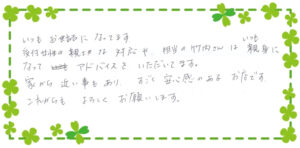 いつもお世話になってます
受付の方の親切な対応や、担当の竹内さんはいつも親身に
なって アドバイスをいただいてます。
家から近い事もあり、すごく安心感のあるお店です
これからも よろしくお願いします。